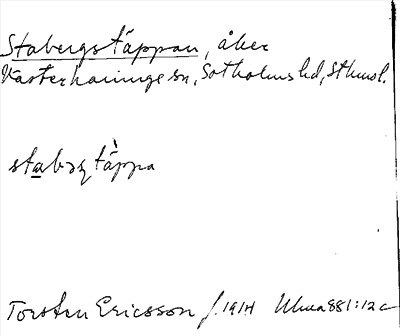 Stabergstäppan, åker
Västerhaninge sn, Sotholms hd, Sthmsl.
stabərj täppa
Torsten Ericsson f. 1914 Uma 881:12c